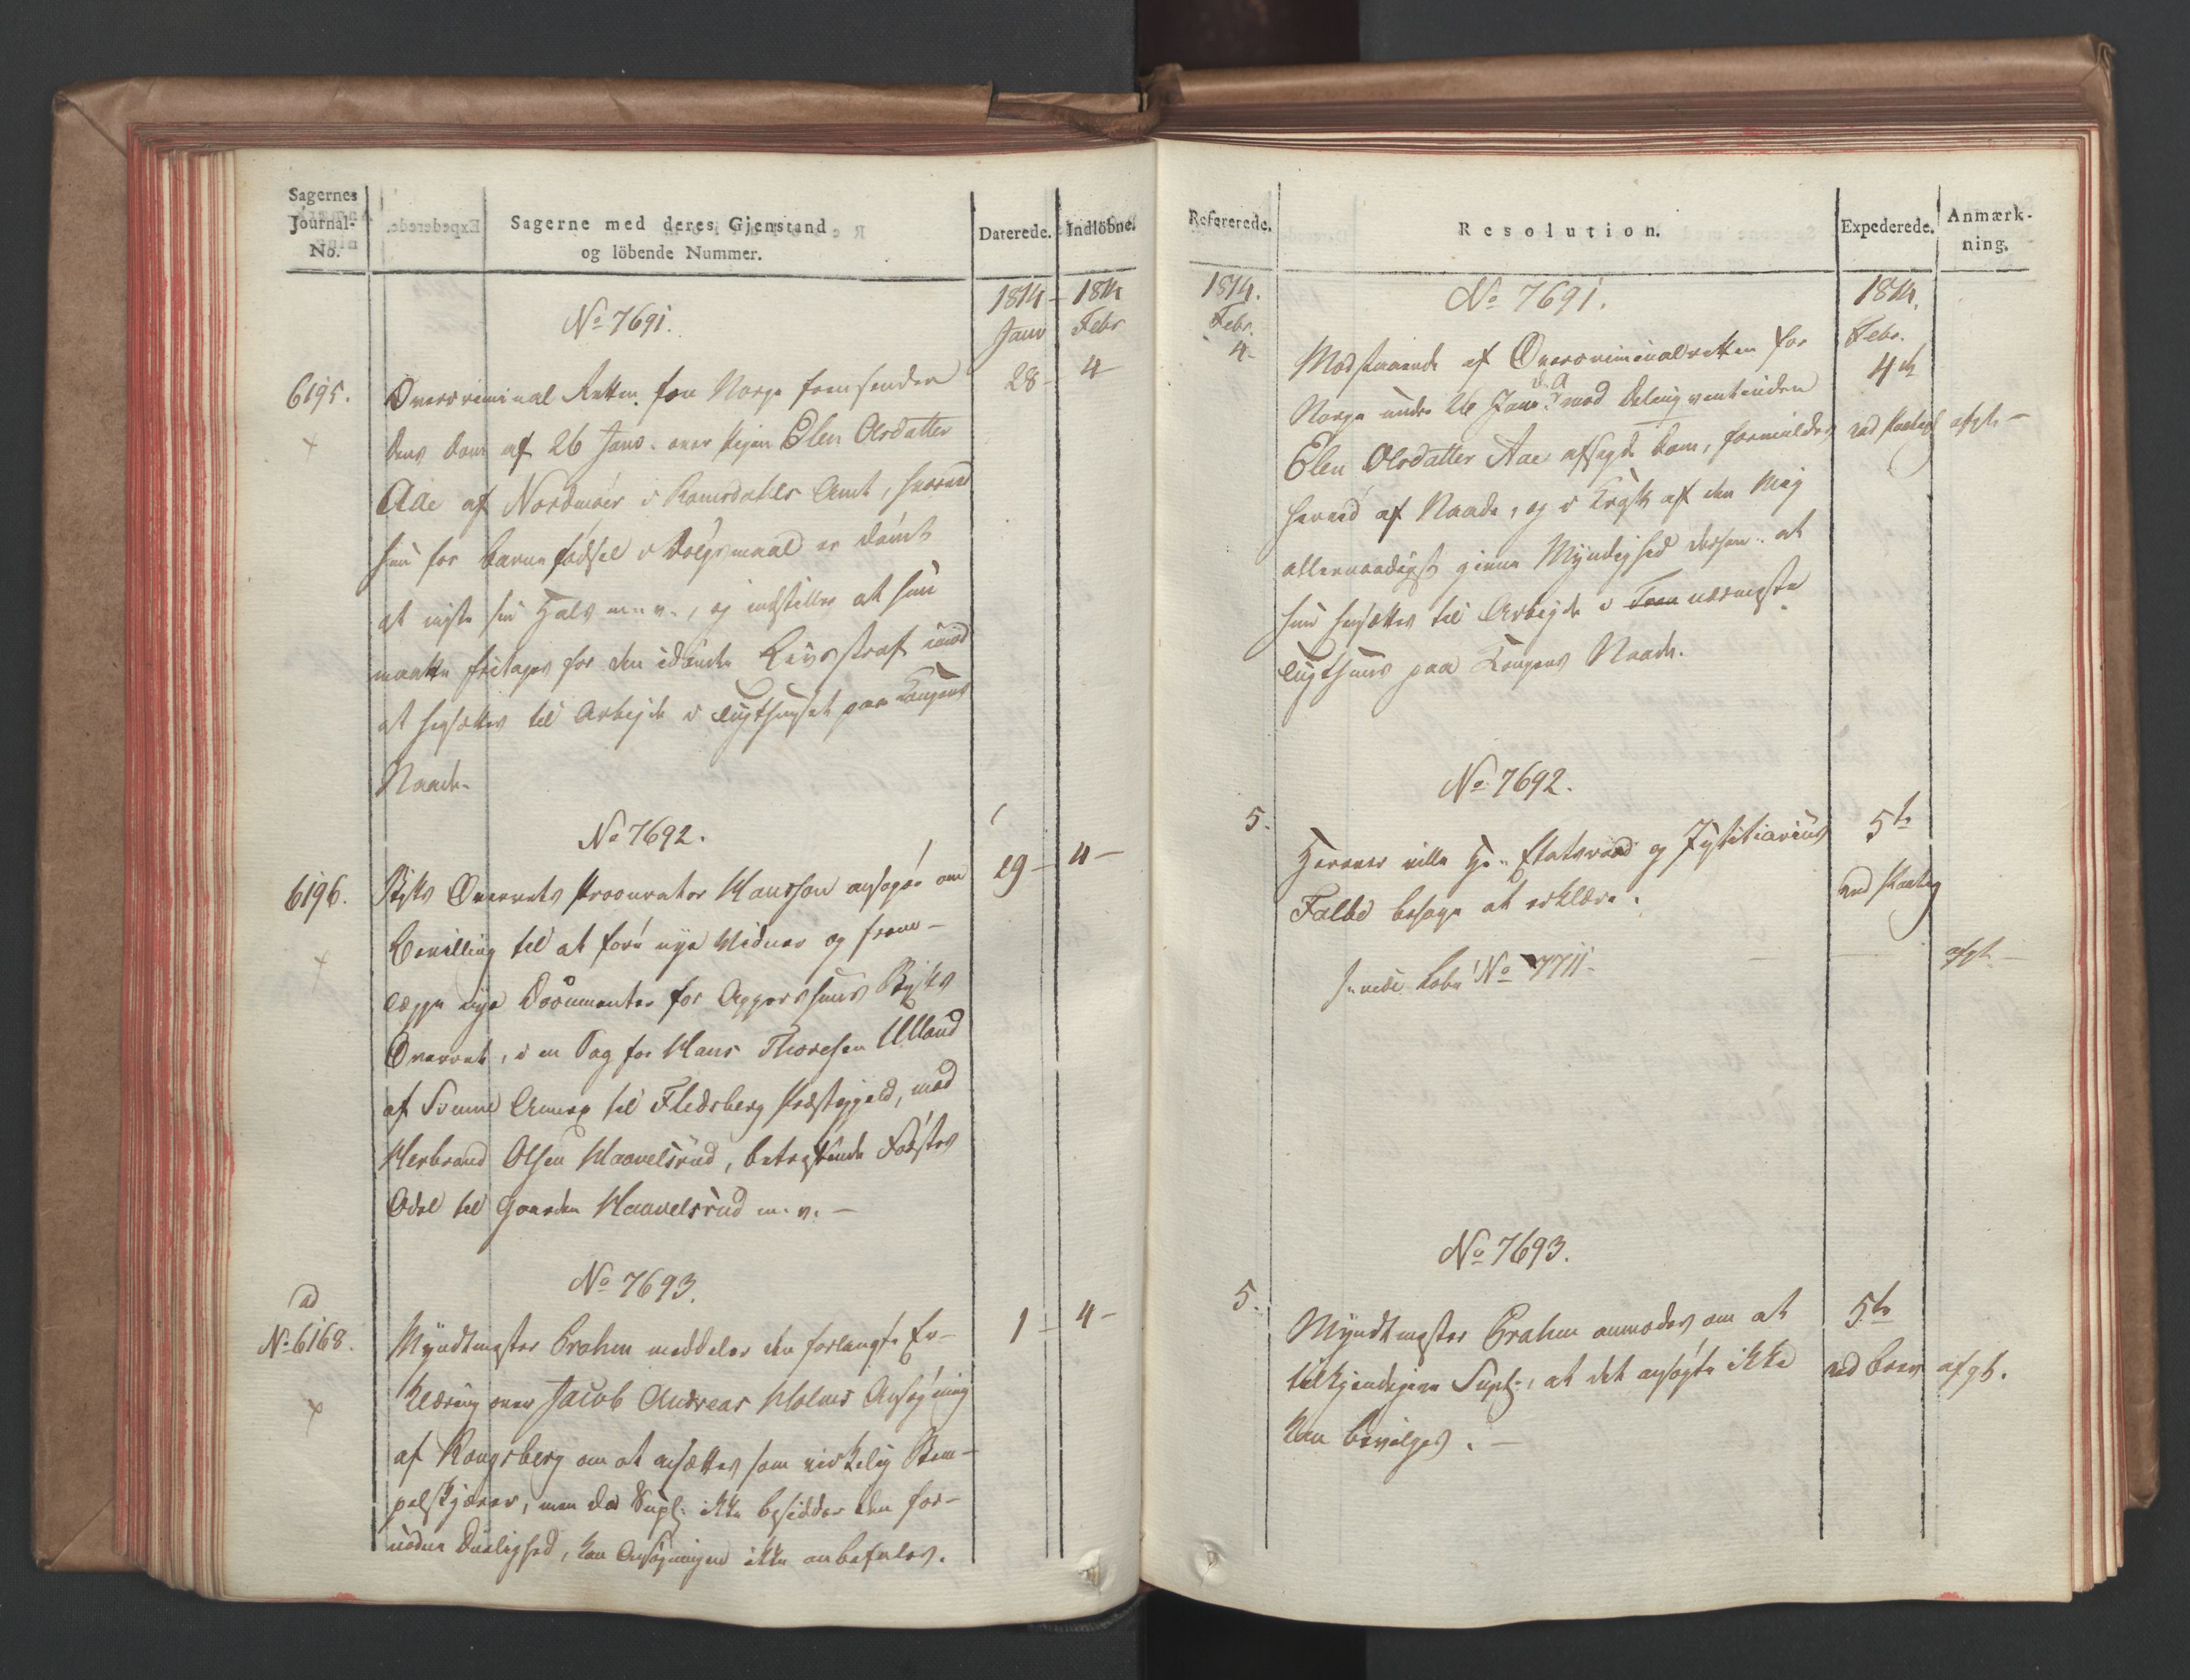 Sagernes
Journal-
No.
Sagerne med deres Gjenstand
og löbende Nummer.
Daterede.
Indlöbne.
1814
1814
Janv
Febr
No 7691.
6195.
Overcriminal Retten for Norge fremsender
28-
4-
dens Dom af 26 Janv. over Pigen Elen Olsdatter
Aae af Nordmör i Romsdahls Amt, hvorved
hun for barnefödsel i Dölgsmaal er dömt
at miste sin Hals m. v., og indstiller at hun
maatte fritages for den idömte Livsstraf imod
at hensættes til Arbejde i Tugthuuset paa Kongens
Naade.
No 7692.
6196.
Stifts Overrets Procurator Hansson ansöger om
29-
4-
Bevilling til at före nye Vidner og frem-
lægge nye Documenter for Aggershuus Stifts
Overret, i en Sag for Hans Thoresen Ulland
af Svene Annex til Flesberg Præstegjeld, mod
Herbrand Olsen Haavelsrud, betreffende
Odel til Gaarden Haavelsrud m. v. -
No 7693.
ad
No 6168.
Myndtmester Brahm meddeler den forlangte Er-
1-
4-
klæring over Jacob Andreas Holms Ansögning
af Kongsberg om at ansættes som virkelig Stem-
pelskjærer, men da Supl: ikke besidder den for-
nödne Duelighed, kan Ansögningen ikke anbefales.
Refererede.
Resolution.
Expederede.
Anmærk-
ning.
1814.
Febr.
4-
No 7691.
1814.
Febr.
4de
Modstaaende af Overcriminalretten for
Norge under 26 Janv. d. A. mod Delinqventinden
Elen Olsdatter Aae afsagte Dom, formildes
ved Paategn
afgt. -
herved af Naade, og i Kraft af den Mig
allernaadigst givne Myndighed derhen: at
hun hensættes til Arbejde i Tron nærmeste
Tugthuus paa Kongens Naade.
No 7692.
5.
5te
Herover ville Hr. Etatsraad og Justitiarius
Falbe behage at erklære.
ved Paateg
s. vide Löbe No 7711.
afgt. -
No 7693.
5.
5te
Myndtmester Brahm anmodes om at
tilkjendegive Supl:, at det ansögte ikke
ved brev
afgt.
kan bevilges. -